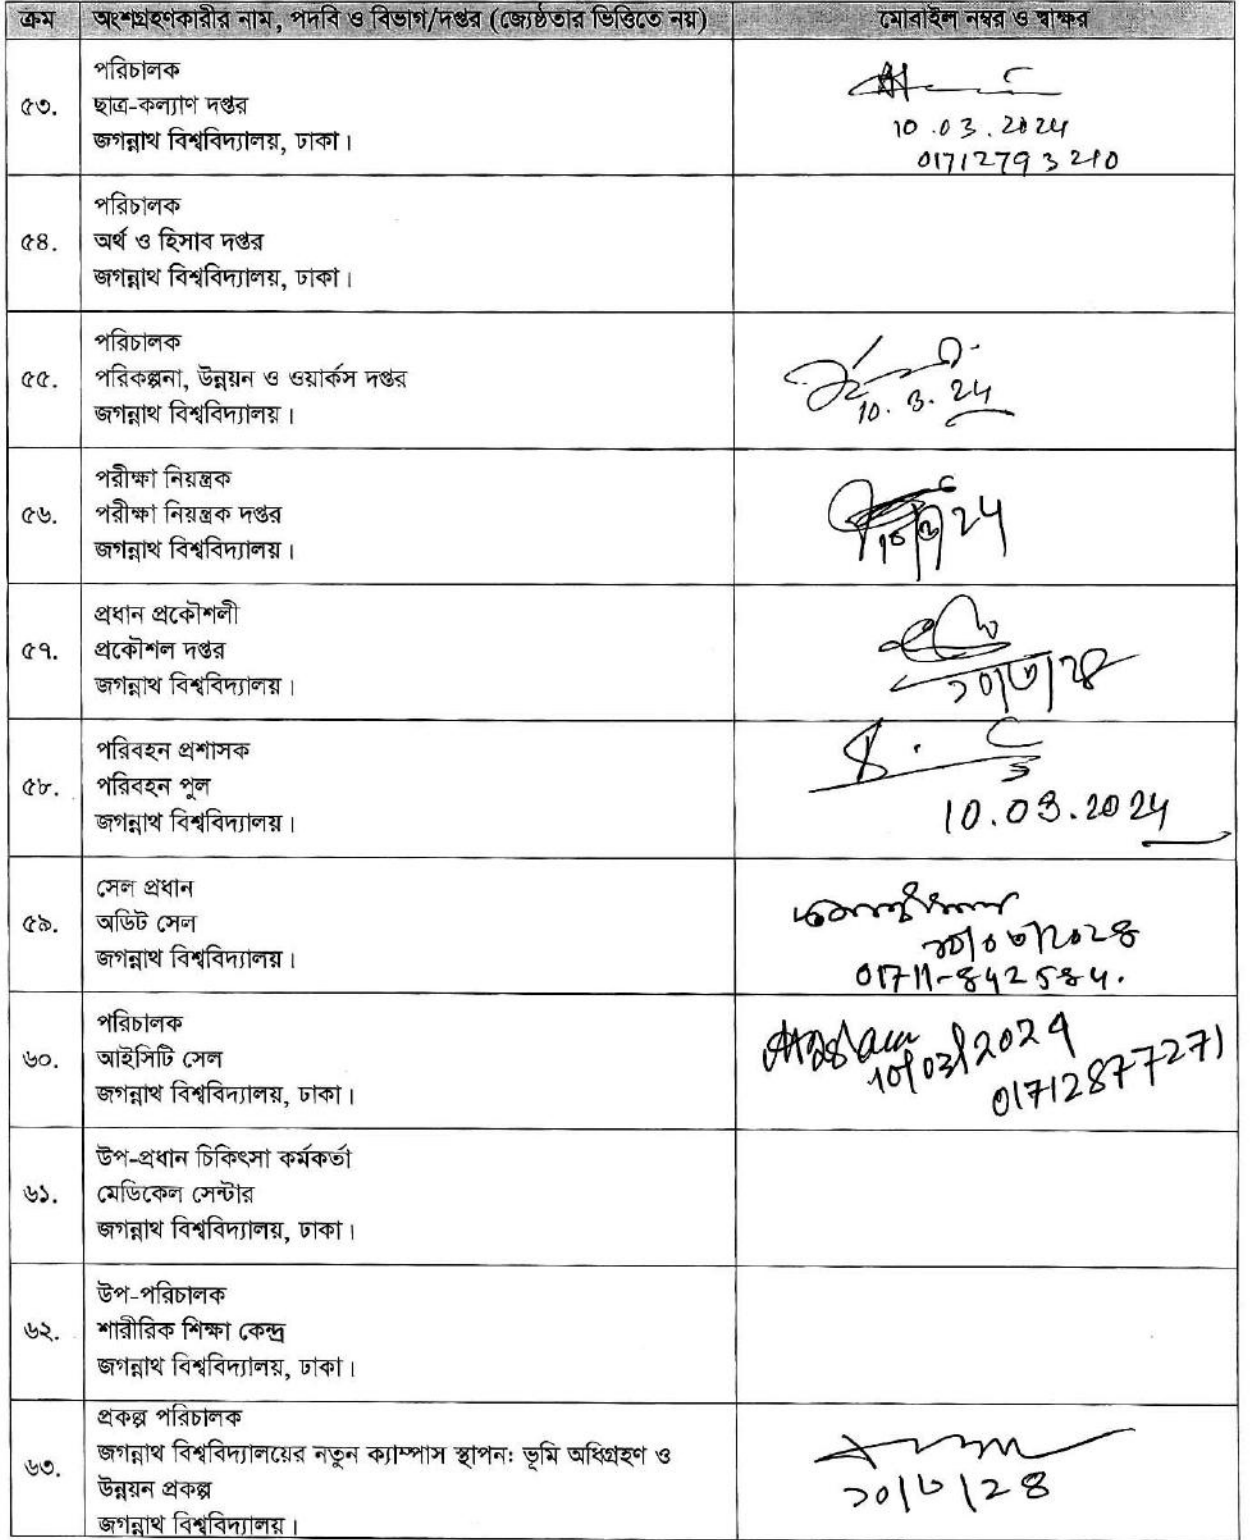 ক্রম অংশগ্রহণকারীর নাম, পদবি ও বিভাগ/দপ্তর (জ্যেষ্ঠতার ভিত্তিতে নয়) মোবাইল নম্বর ও স্বাক্ষর
৫৩.
পরিচালক
ছাত্র-কল্যাণ দপ্তর
জগন্নাথ বিশ্ববিদ্যালয়, ঢাকা।
10.03.2024
01712793210
৫৪.
পরিচালক
অর্থ ও হিসাব দপ্তর
জগন্নাথ বিশ্ববিদ্যালয়, ঢাকা।
৫৫.
পরিচালক
পরিকল্পনা, উন্নয়ন ও ওয়ার্কস দপ্তর
জগন্নাথ বিশ্ববিদ্যালয়।
10.3.24
৫৬.
পরীক্ষা নিয়ন্ত্রক
পরীক্ষা নিয়ন্ত্রক দপ্তর
জগন্নাথ বিশ্ববিদ্যালয়।
10/3/24
৫৭.
প্রধান প্রকৌশলী
প্রকৌশল দপ্তর
জগন্নাথ বিশ্ববিদ্যালয়।
১০/৩/২৪
৫৮.
পরিবহন প্রশাসক
পরিবহন পুল
জগন্নাথ বিশ্ববিদ্যালয়।
10.03.2024
৫৯.
সেল প্রধান
অডিট সেল
জগন্নাথ বিশ্ববিদ্যালয়।
১০/০৩/২০২৪
01711-842584.
৬০.
পরিচালক
আইসিটি সেল
জগন্নাথ বিশ্ববিদ্যালয়, ঢাকা।
10/03/2024
01712877271
৬১.
উপ-প্রধান চিকিৎসা কর্মকর্তা
মেডিকেল সেন্টার
জগন্নাথ বিশ্ববিদ্যালয়, ঢাকা।
৬২.
উপ-পরিচালক
শারীরিক শিক্ষা কেন্দ্র
জগন্নাথ বিশ্ববিদ্যালয়, ঢাকা।
৬৩.
প্রকল্প পরিচালক
জগন্নাথ বিশ্ববিদ্যালয়ের নতুন ক্যাম্পাস স্থাপন: ভূমি অধিগ্রহণ ও
উন্নয়ন প্রকল্প
জগন্নাথ বিশ্ববিদ্যালয়।
১০/৩/২৪